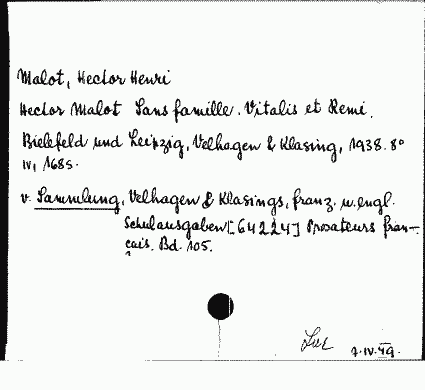 Malot, Hector Henri
Hector Malot Sans famille. Vitalis et Remi.
Bielefeld und Leipzig, Velhagen & Klasing, 1938. 8°
IV, 168 S.
v. Sammlung, Velhagen & Klasings, franz. u. engl.
Schulausgaben [64224] Prosateurs fran-
çais. Bd. 105.
7.IV.49.